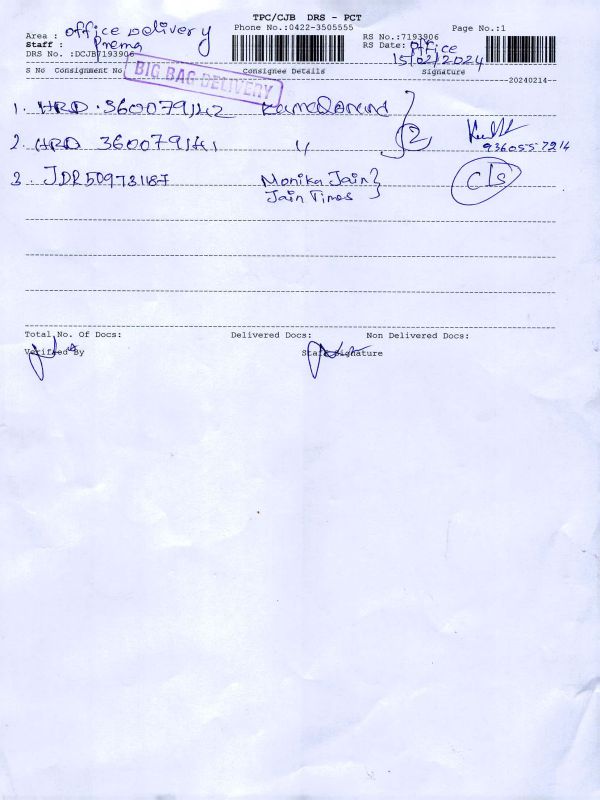 TPC/CJB DRS - PCT
Phone No.:0422-3505555 Page No.:1
Area : office Delivery
RS No.:7193906
Staff : Prema
RS Date: office
15/02/2024
DRS No. :DCJB7193906
BIG BAG DELIVERY
S No Consignment No Consignee Details Signature
20240214
1. HRD 360079142
2. HRD 360079141 〃 2
3. JDR509731187 Monika Jain
Jain Times
CIS
Total No. Of Docs: Delivered Docs: Non Delivered Docs:
Verified By Staff Signature